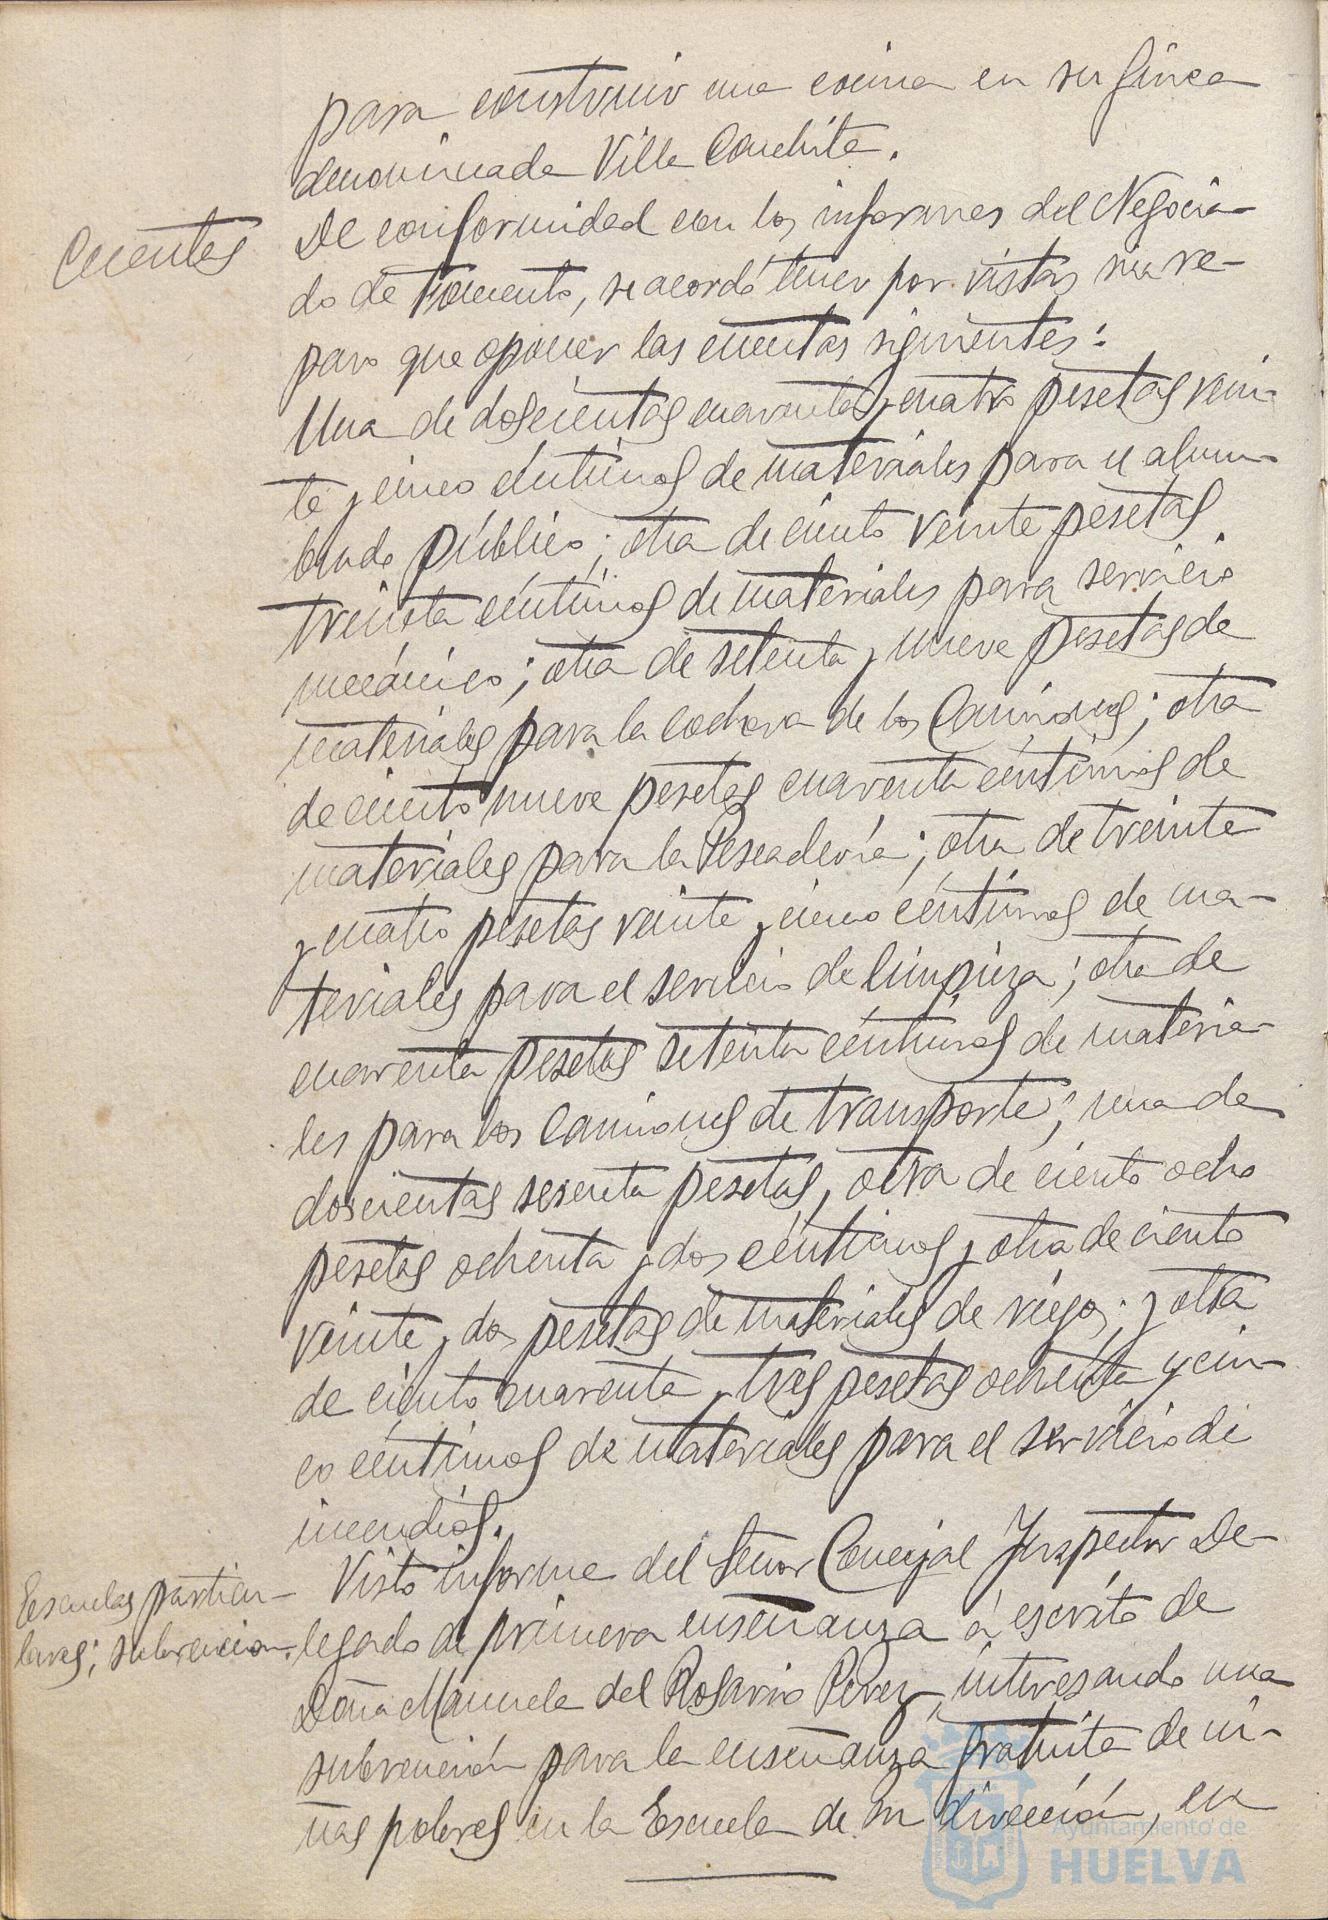 para construir una cocina en su finca
denominada Villa Conchita.
Cuentas
De conformidad con los informes del Negocia-
do de Fomento, se acordó tener por vistas sin re-
paro que oponer las cuentas siguientes:
Una de doscientas cuarenta y cuatro pesetas vein-
te y cinco céntimos de materiales para el alum-
brado público; otra de ciento veinte pesetas
treinta céntimos de materiales para servicio
mecánico; otra de setenta y nueve pesetas de
materiales para la cochera de los Camiones; otra
de ciento nueve pesetas cuarenta céntimos de
materiales para la Pescadería; otra de treinta
y cuatro pesetas veinte y cinco céntimos de ma-
teriales para el servicio de limpieza; otra de
cuarenta pesetas setenta céntimos de materia-
les para los Camiones de transporte; una de
doscientas sesenta pesetas, otra de ciento ocho
pesetas ochenta y dos céntimos y otra de ciento
veinte y dos pesetas de materiales de riego; y otra
de ciento cuarenta y tres pesetas ochenta y cin-
co céntimos de materiales para el servicio de
incendios.
Escuelas particu-
lares; subvencion.
Visto informe del Señor Concejal Inspector De-
legado de primera enseñanza á escrito de
Doña Manuela del Rosario Perez, interesando una
subvención para la enseñanza gratuita de ni-
ñas pobres en la Escuela de su dirección, en
Ayuntamiento de
HUELVA